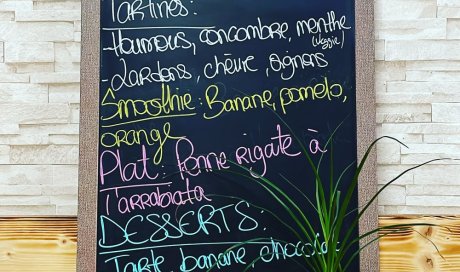 Tartines:
-Houmous, concombre, menthe
(Veggie)
-Lardons, chèvre, oignons
Smoothie: Banane, pomelo,
orange
Plat: Penne rigate à
l'arrabiata
DESSERTS:
Tarte, banane, chocolat